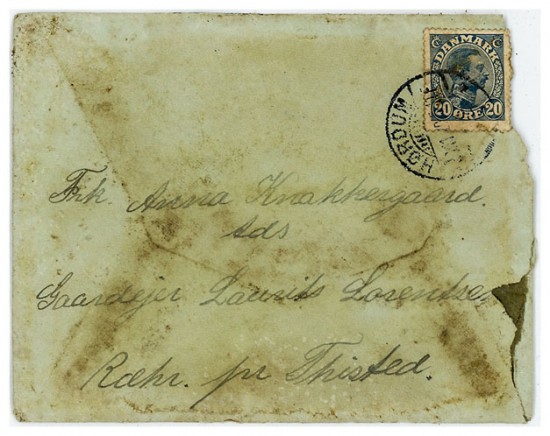 DANMARK
20 ØRE 20
HØRDUM
Frk. Anna Knakkergaard.
Ads
Gaardejer Laurits Lorentsen
Ræhr. pr Thisted.